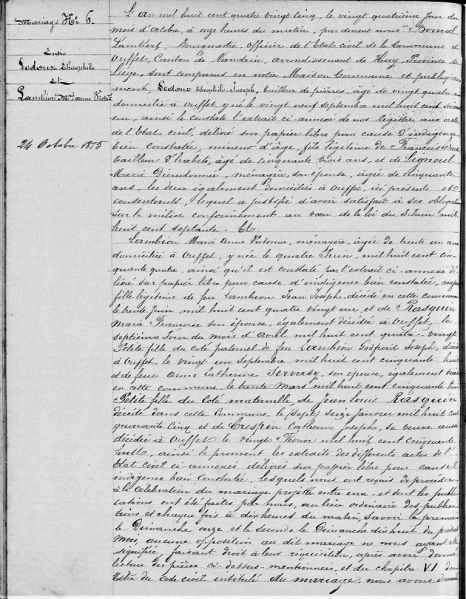 Mariage N° 6.
Entre
Ledoux Théophile
et
Lambion M. anne Vict.
24 Octobre 1885
L'an mil huit cent quatre vingt cinq, le vingt quatrième jour du
mois d'Octobre, à onze heures du matin, par devant nous
Lambert, Bourgmestre, officier de l'Etat civil de la Commune d'
Ouffet, Canton de Nandrin, arrondissement de Huy, Province de
Liége, sont comparus en notre Maison Commune et publique
ment, Ledoux Théophile Joseph, tailleur de pierres, âgé de vingt quatre ans
domicilié à Ouffet, y né le vingt neuf septembre mil huit cent
un, ainsi le constate l'extrait ci annexé de nos Registres aux actes
de l'Etat civil, délivré sur papier libre pour cause d'indigence
bien constatée, mineur d'âge, fils légitime de François
tailleur d'habits, âgé de cinquante trois ans, et de
Marie Dieudonnée, ménagère, son épouse, âgée de cinquante
ans, les deux également domiciliés à Ouffet, ici présents et
consentants, lequel a justifié d'avoir satisfait à ses obligations
sur la milice conformément au vœu de la loi du 3 Juin mil
huit cent septante. Et
Lambion Marie Anne Victoire, ménagère, âgée de trente un ans
domiciliée à Ouffet, y née le quatre Juin, mil huit cent cin
quante quatre, ainsi qu'il est constaté par l'extrait ci-annexé dé
livré sur papier libre pour cause d'indigence bien constatée,
fille légitime de feu Lambion Jean Joseph, décédé en cette commune
le trente Juin mil huit cent quatre vingt un, et de Rasquin
Marie Françoise son épouse, également décédée à Ouffet, le
septième jour du mois d'avril mil huit cent quatre-vingt
Petite fille du coté paternel de feu Lambion Joseph, décédé
à Ouffet, le vingt septembre, mil huit cent cinquante huit
et de feue Anne Catherine Servais, son épouse, également
en cette commune, le trente Mars mil huit cent cinquante
Petite fille du coté maternelle de Jean Louis Rasquin
décédé dans cette Commune, le (sept) seize Janvier mil huit cent
quarante cinq et de Crespin Catherine Josephe, sa veuve aussi
décédée à Ouffet le vingt Février mil huit cent cinquante
huit, ainsi le prouvent les extraits des différents actes de l'
Etat civil ci-annexés délivrés sur papier libre pour cause d'
indigence bien constatée, lesquels nous ont requis de procéder
à la célébration du mariage projetté entre eux et dont les publi
cations ont été faites par nous, au lieu ordinaire des publica
tions et chaque fois à dix heures du matin, savoir la première
le Dimanche onze et la seconde le Dimanche dix huit du présent
mois, aucune opposition au dit mariage ne nous ayant été
signifiée, faisant droit à leur réquisition, après avoir donné
lecture des pièces ci-dessus mentionnées, et du chapitre VI du
titre du Code civil intitulé du mariage, nous avons demandé